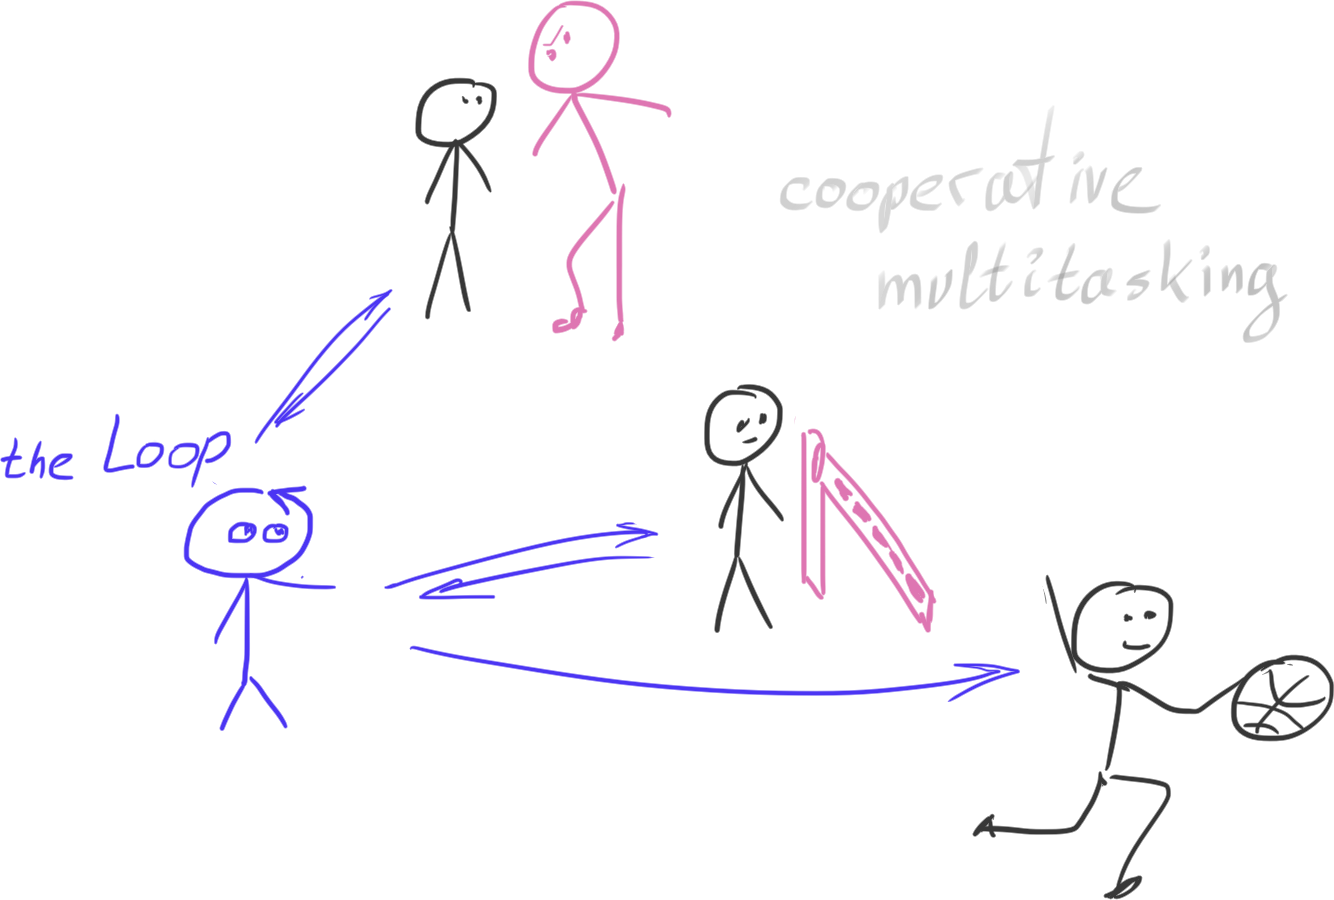 cooperative
multitasking
the Loop